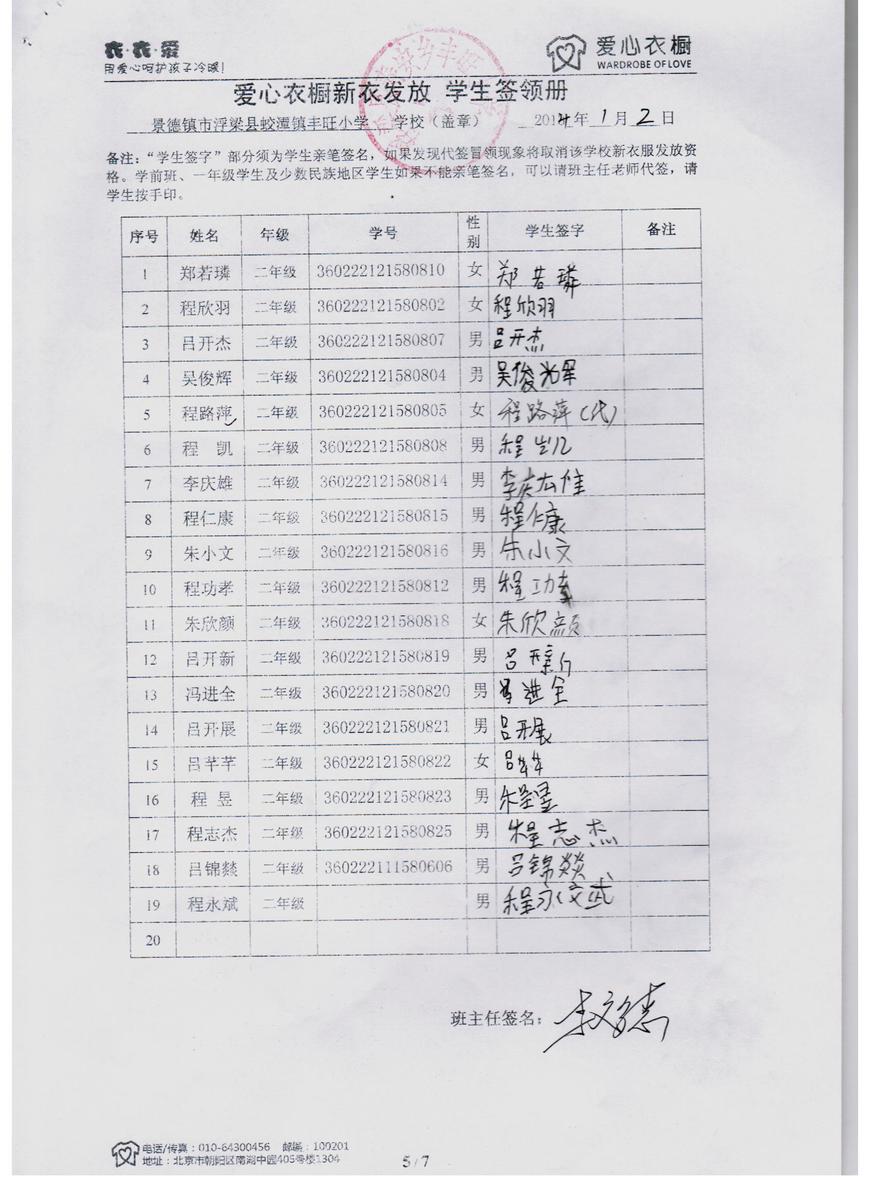 衣·衣·爱
用爱心呵护孩子冷暖!
爱心衣橱
WARDROBE OF LOVE
爱心衣橱新衣发放 学生签领册
景德镇市浮梁县蛟潭镇丰旺小学 学校（盖章） 2014年 1月 2日
备注：“学生签字”部分须为学生亲笔签名，如果发现代签冒领现象将取消该学校新衣服发放资
格。学前班、一年级学生及少数民族地区学生如果不能亲笔签名，可以请班主任老师代签，请
学生按手印。
序号 姓名 年级 学号 性别 学生签字 备注
1 郑若璘 二年级 360222121580810 女 郑若璘
2 程欣羽 二年级 360222121580802 女 程欣羽
3 吕开杰 二年级 360222121580807 男 吕开杰
4 吴俊辉 二年级 360222121580804 男 吴俊辉
5 程路萍 二年级 360222121580805 女 程路萍（代）
6 程 凯 二年级 360222121580808 男 程凯
7 李庆雄 二年级 360222121580814 男 李庆雄
8 程仁康 二年级 360222121580815 男 程仁康
9 朱小文 二年级 360222121580816 男 朱小文
10 程功孝 二年级 360222121580812 男 程功孝
11 朱欣颜 二年级 360222121580818 女 朱欣颜
12 吕开新 二年级 360222121580819 男 吕开新
13 冯进全 二年级 360222121580820 男 进全
14 吕开展 二年级 360222121580821 男 吕开展
15 吕芊芊 二年级 360222121580822 女 吕芊芊
16 程 昱 二年级 360222121580823 男 程昱
17 程志杰 二年级 360222121580825 男 程志杰
18 吕锦燚 二年级 360222111580606 男 吕锦燚
19 程永斌 二年级 男 程永斌
20
班主任签名：
电话/传真：010-64300456 邮编：100201
地址：北京市朝阳区南湖中园405号楼1304
5/7